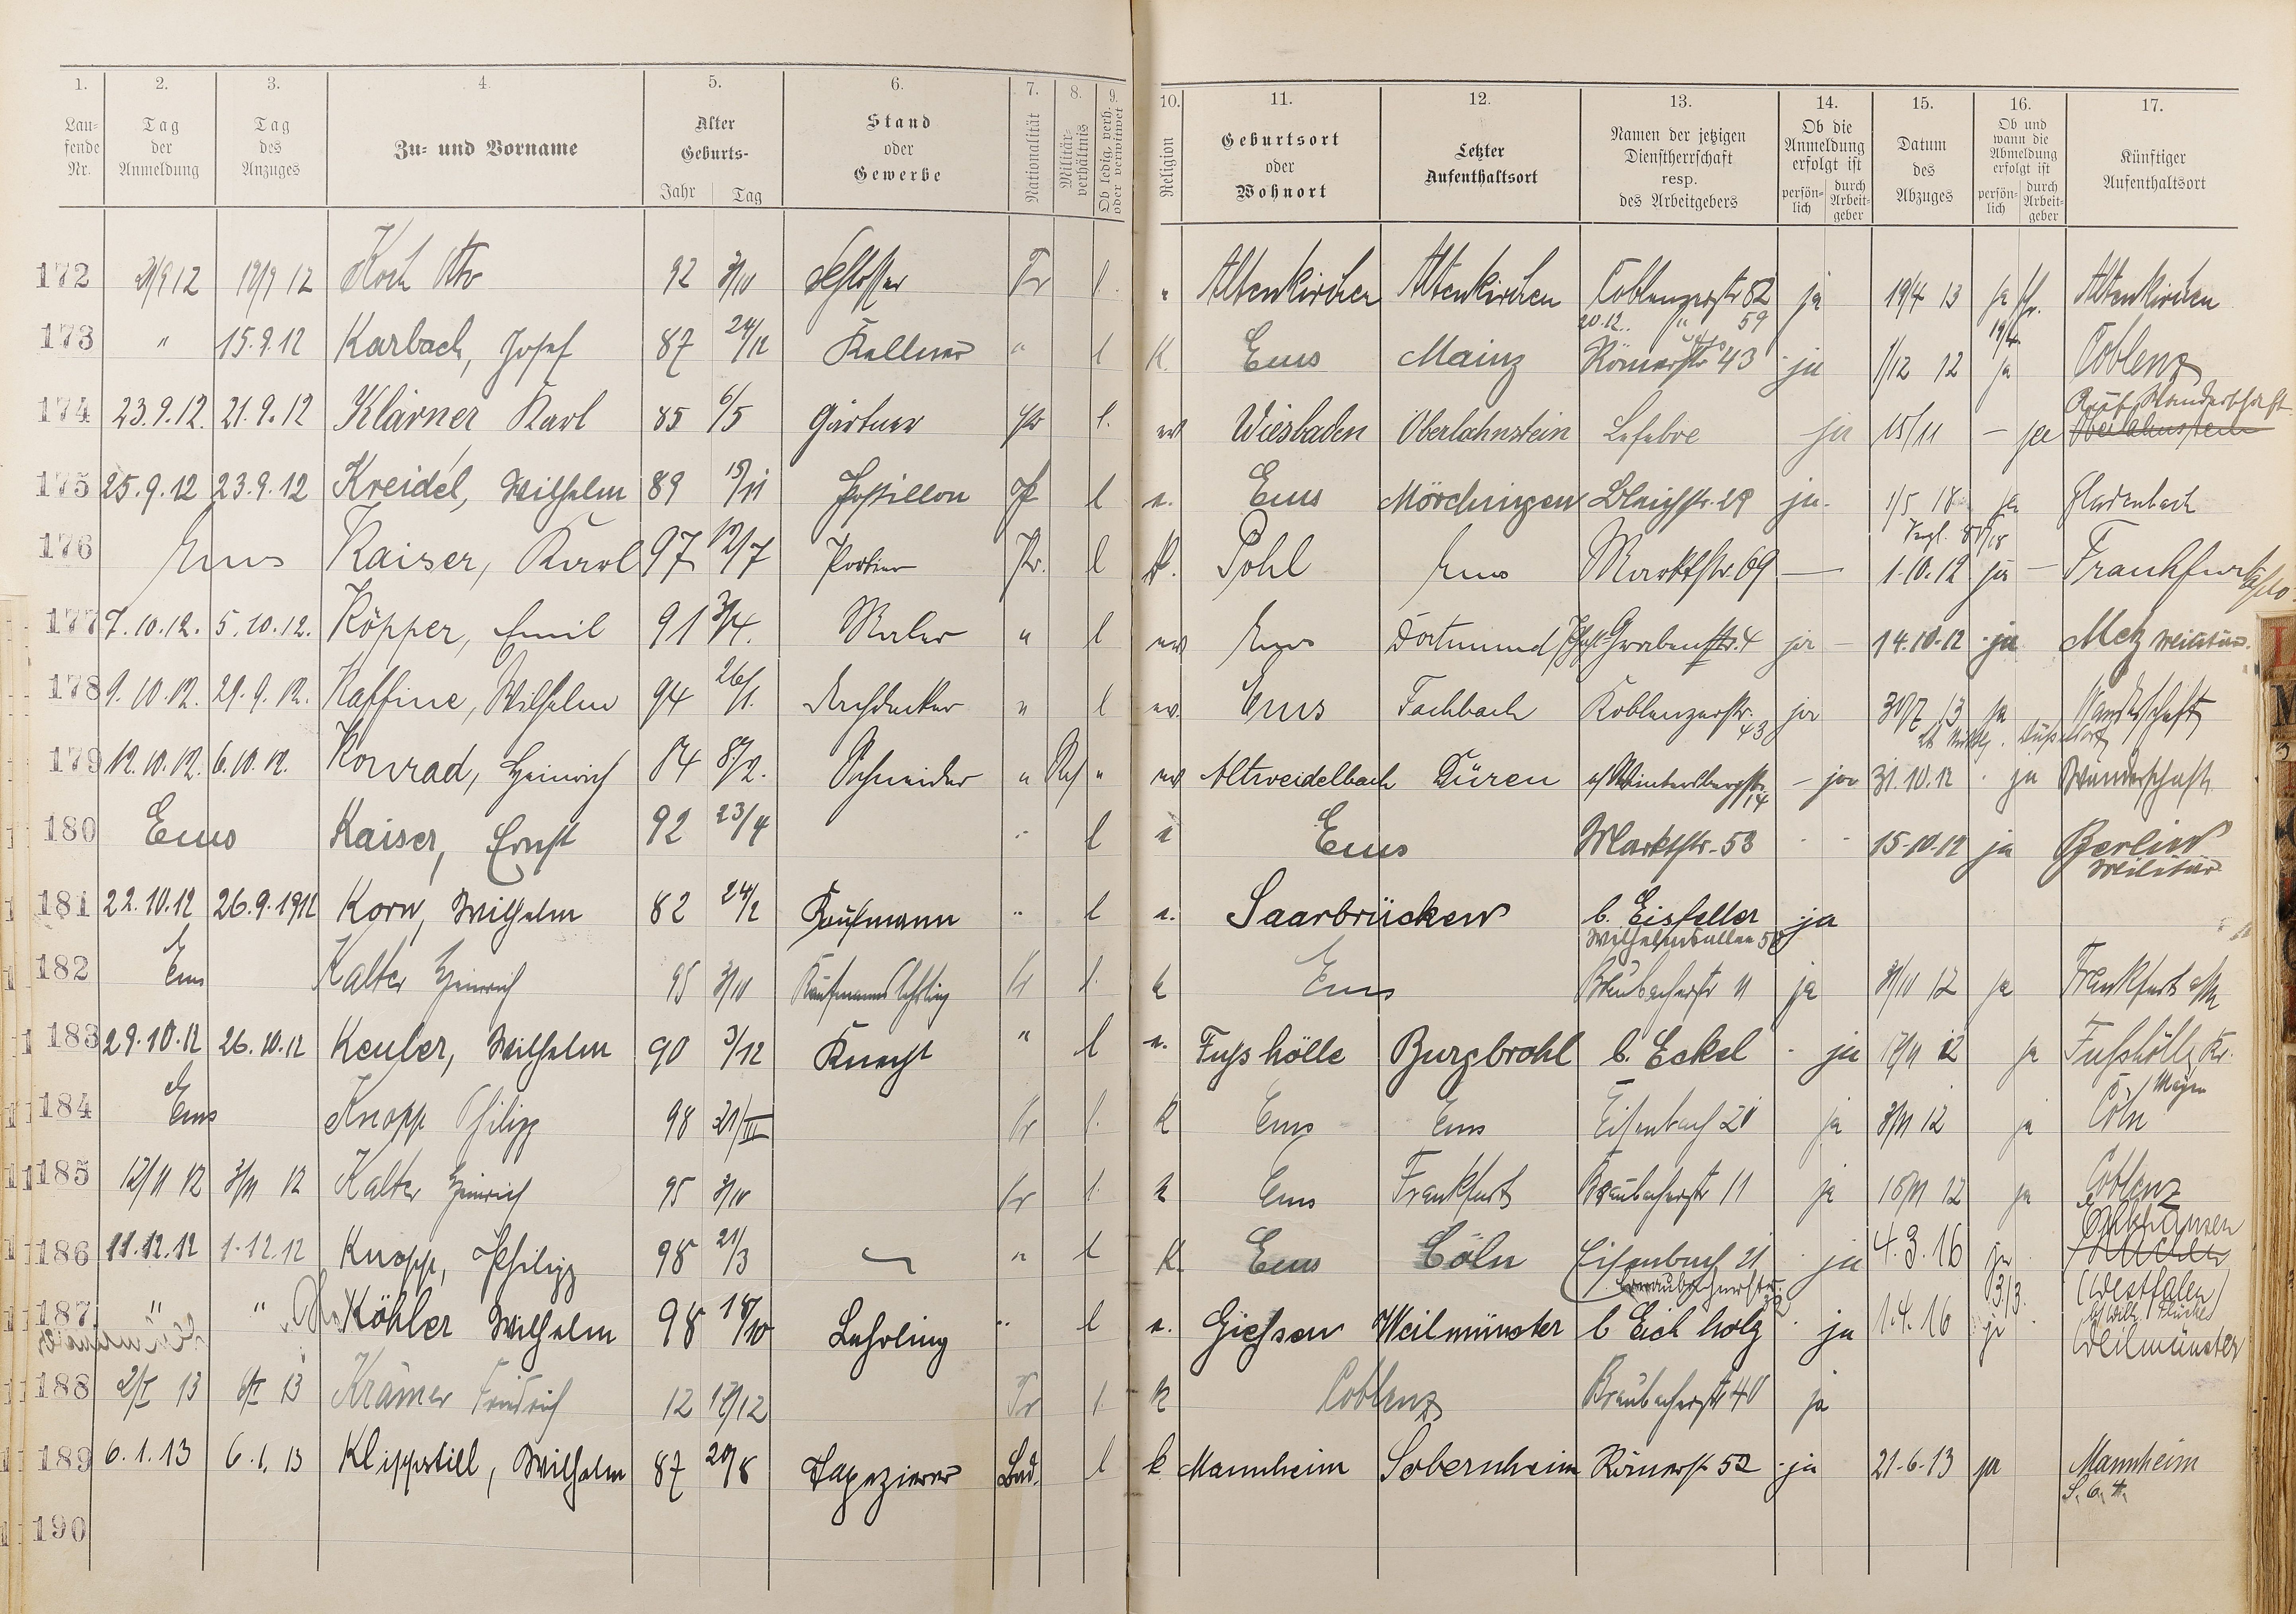 1. 2. 3. 4. 5. 6. 7. 8. 9. 10. 11. 12. 13. 14. 15. 16. 17.
Lau- fende Nr. Tag der Anmeldung Tag des Anzuges Zu- und Vorname Alter Geburts- Jahr Tag Stand oder Gewerbe Nationalität Militär- verhältnis Ob ledig, verh. oder verwitwet Religion Geburtsort oder Wohnort Letzter Aufenthaltsort Namen der jetzigen Dienstherrschaft resp. des Arbeitgebers Ob die Anmeldung erfolgt ist persön- lich durch Arbeit- geber Datum des Abzuges Ob und wann die Abmeldung erfolgt ist persön- lich durch Arbeit- geber Künftiger Aufenthaltsort
172 19/9 12 Koch Otto 92 Schlosser Pr l. Altenkirchen Altenkirchen Coblenzerstr 82 ja 19/4 13 ja Altenkirchen
20.12. " 59 19/4.
173 " 15.9.12 Karbach, Josef 87 24/12 Kellner " l K. Ems Mainz Römerstr 43 ja 1/12 12 ja Coblenz
174 23.9.12. 21.9.12 Klärner Karl 85 6/5 Gärtner Pr l. ev Wiesbaden Oberlahnstein Lefebre ja 15/11 – ja Auf Wanderschaft
Oberlahnstein
175 25.9.12 23.9.12 Kreidel, Wilhelm 89 15/11 Postillon Pr l e. Ems Mörchingen Bleichstr. 29 ja. 1/5 18 ja Gladenbach
176 Ems Kaiser, Karl 97 12/7 Portier Pr. l K. Pohl Ems Marktstr. 69 — 1.10.12 ja – Frankfurt
177 7.10.12. 5.10.12. Köpper, Emil 91 Maler " l ev Ems Dortmund Grabenstr. 4 ja – 14.10.12 ja Metz Militär.
178 9.10.12. 29.9.12. Kaffine, Wilhelm 94 26/1. Dachdecker " l ev. Ems Fachbach Koblenzerstr. 43 ja 30/7 13 ja Wanderschaft
179 12.10.12. 6.10.12. Konrad, Heinrich 84 8/2. Schneider " " ev Altweidelbach Düren Wintersbergstr. 14 – ja 31.10.12 ja Wanderschaft
180 Ems Kaiser, Ernst 92 23/4 l e Ems Marktstr. 53 15.10.12 ja Berlin
Militär
181 22.10.12 26.9.1912 Korn, Wilhelm 82 24/2 Kaufmann " l e. Saarbrücken b. Eisfeller ja
Wilhelmsallee
182 Ems Kalter Heinrich 95 Kaufmanns Lehrling Pr l. k Ems Braubacherstr 11 ja 12 ja Frankfurt a/M
183 29.10.12 26.10.12 Keuler, Wilhelm 90 3/12 Knecht " l e. Fusshölle Burgbrohl b. Eckel ja 12 ja Fusshölle Kr. Mayen
184 Ems Knopp Philipp 98 21/III Pr l. K Ems Ems Eisenbach 21 ja 12 ja Cöln
185 12/11 12 3/11 12 Kalter Heinrich 95 Pr l. k Ems Frankfurt Braubacherstr 11 ja 12 ja Coblenz
186 11.12.12 1.12.12 Knopp, Philipp 98 21/3 " l K. Ems Cöln Eisenbach 21 ja 4.3.16 ja
Braubacherstr. 3/3. (Westfalen)
187 " " Köhler Wilhelm 98 18/10 Lehrling " l e. Giessen Weilmünster b Eichholz ja 1.4.16 ja Weilmünster
188 2/I 13 13 Krämer Friedrich 12 12/12 Pr l k Coblenz Braubacherstr 40 ja
189 6.1.13 6.1.13 Klippstill, Wilhelm 87 20/8 Tapezierer Bad. l k Mannheim Sobernheim Römerstr 52 ja 21.6.13 ja Mannheim
S. 6. 4.
190